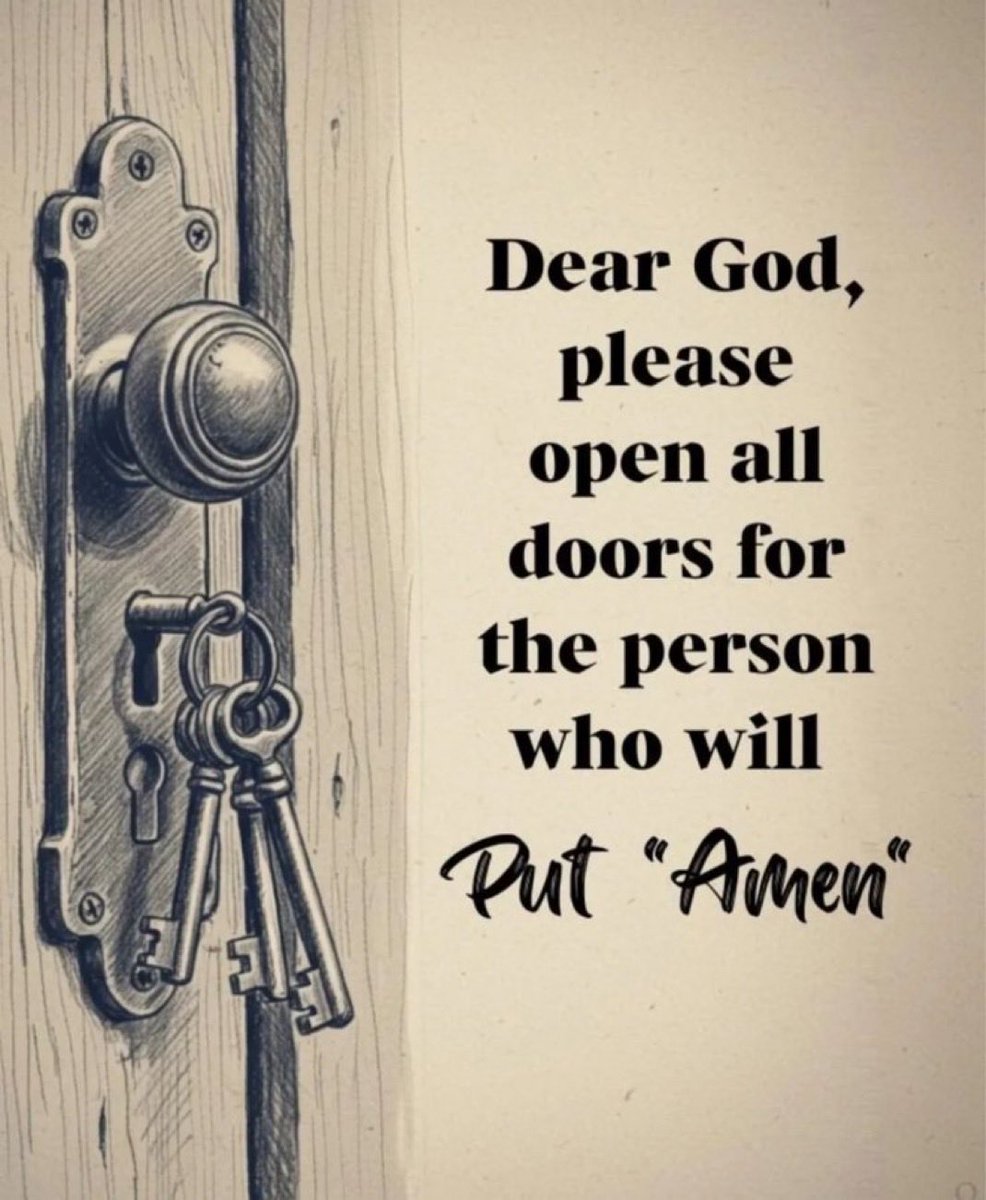 Dear God,
please
open all
doors for
the person
who will
Put “Amen“